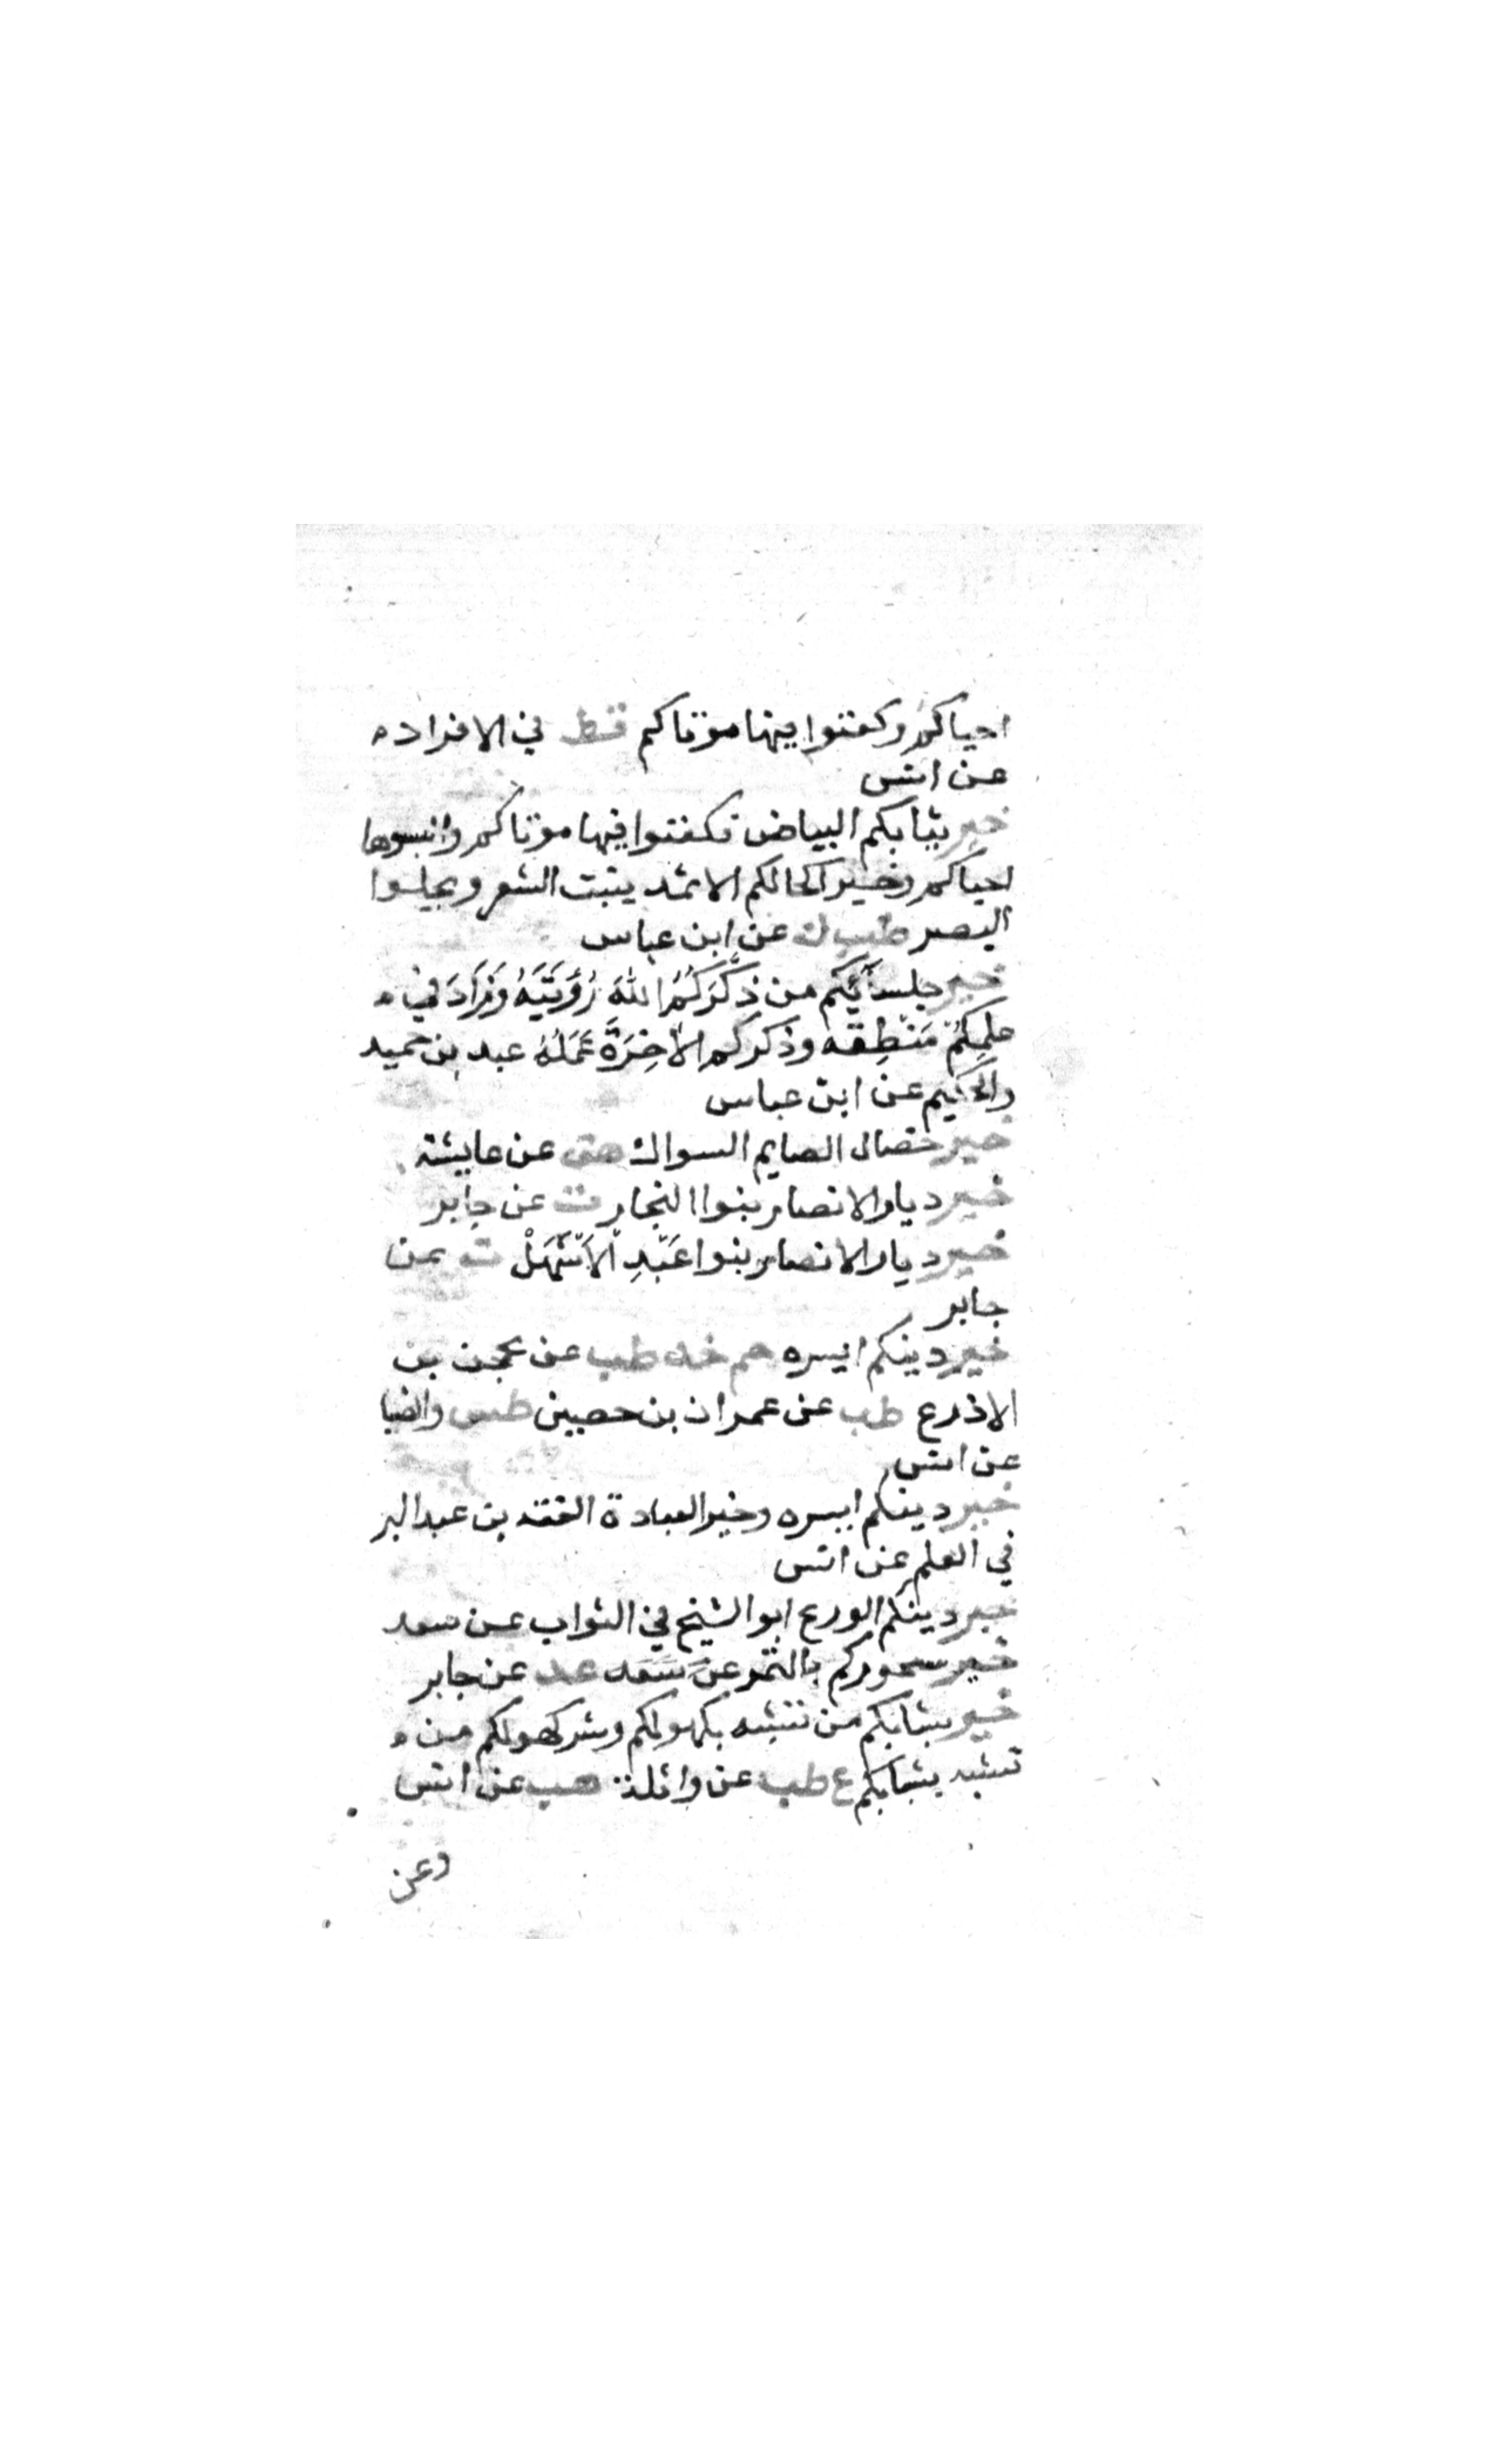 احياكم وكفنوا فيها موتاكم قط في الافراد ه
عن انس
خير ثيابكم البياض فكفنوا فيها موتاكم والبسوها
احياكم وخير اكحالكم الاثمد ينبت الشعر ويجلوا
البصر طب ك عن ابن عباس
خير جلسائكم من ذَكَّرَكُمُ اللهَ رُؤْيَتَهُ وَزَادَ في ه
علمِكُمْ مَنْطِقه وذكركم الأخِرَةَ عَمَلُهُ عبد بن حميد
والحكيم عن ابن عباس
خير خصال الصايم السواك هق عن عايشة
خير ديار الانصار بنوا النجار ت عن جابر
خير ديار الانصار بنوا عَبْدِ الْأَشْهَلْ ت عن
جابر
خير دينكم ايسره حم خد طب عن محجن بن
الاذرع طب عن عمران بن حصين طس والضيا
عن انس
خير دينكم ايسره وخير العبادة الفقه بن عبد البر
في العلم عن انس
خير دينكم الورع ابو الشيخ في الثواب عن سعد
خير سحوركم بالتمر عن سَعَد عد عن جابر
خير شبابكم من تشبه بكهولكم وشر كهولكم من ه
تشبه بشبابكم ع طب عن واثلة هب عن انس
وعن